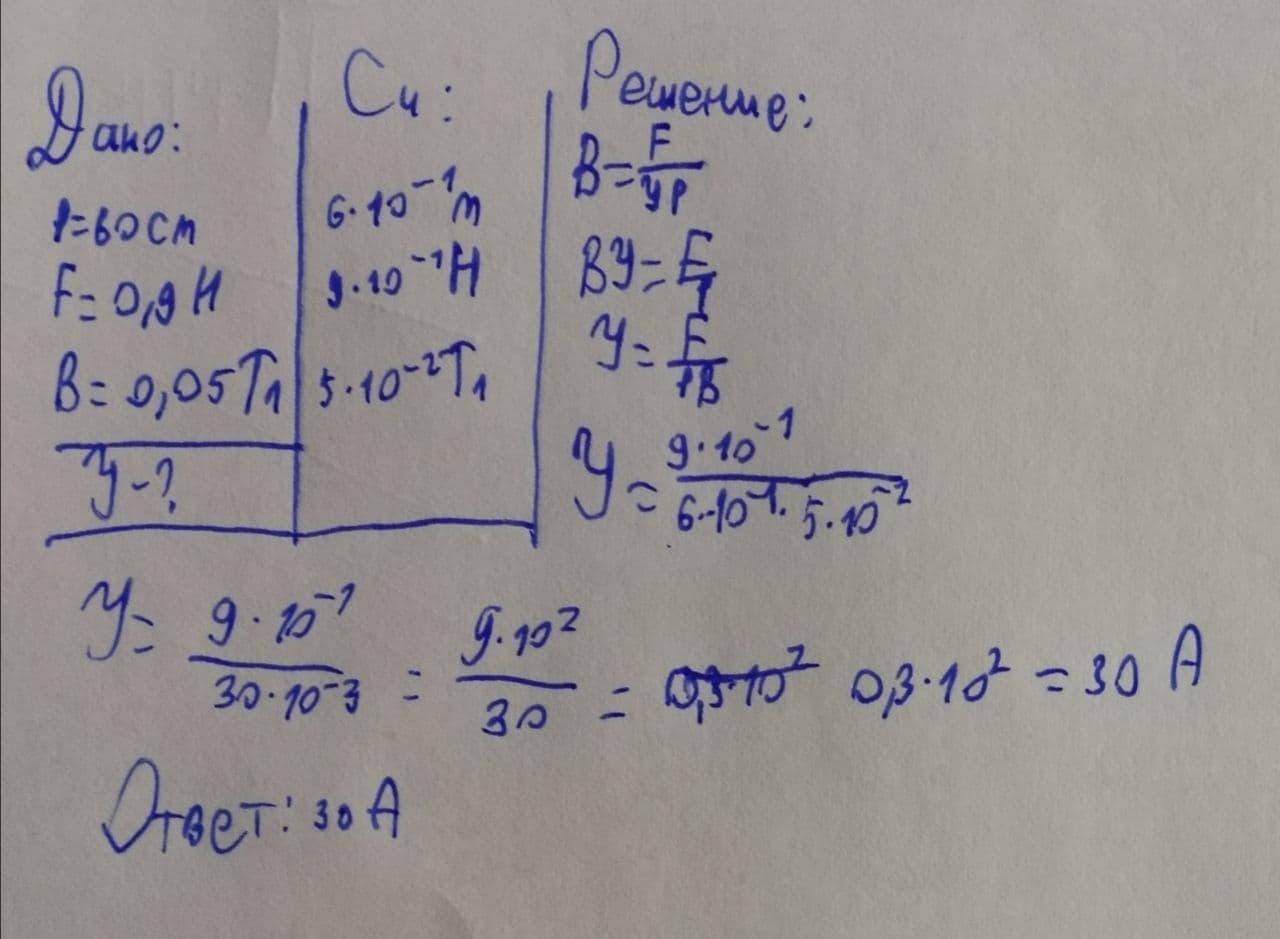 Дано:
l=60 см
F=0,9 Н
B=0,05 Тл
У-?
Си:
6·10⁻¹ м
9·10⁻¹ Н
5·10⁻² Тл
Решение:
B=F/Уl
BУ=F/l
У=F/lB
У=9·10⁻¹/6·10⁻¹·5·10⁻²
У=9·10⁻¹/30·10⁻³=9·10²/30=0,3·10²=30 А
Ответ: 30 А